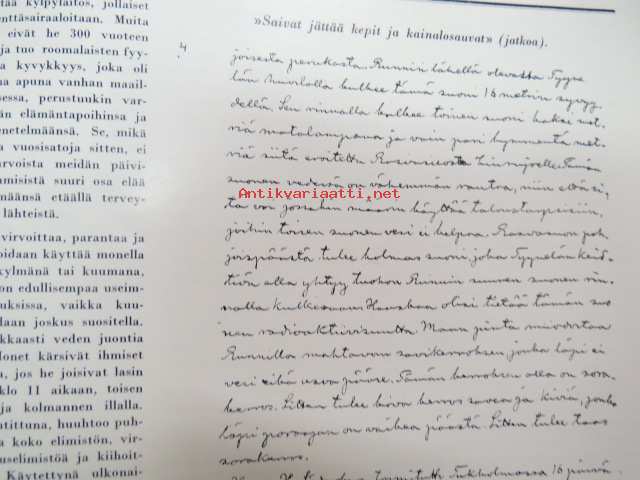 ää kylpylaitos, jollaiset
enttäsairaaloitaan. Muita
eivät he 300 vuoteen
ja tuo roomalaisten fyy-
a kyvykkyys, joka oli
na apuna vanhan maail-
sessa, perustuukin var-
än elämäntapoihinsa ja
enetelmäänsä. Se, mikä
a vuosisatoja sitten, ei
arvoista meidän päivi-
misistä suuri osa elää
määnsä etäällä tervey-
lähteistä.
virvoittaa, parantaa ja
oidaan käyttää monella
kylmänä tai kuumana,
on edullisempaa useim-
uksissa, vaikka kuu-
daan joskus suositella.
kkaasti veden juontia
Monet kärsivät ihmiset
a, jos he joisivat lasin
klo 11 aikaan, toisen
ja kolmannen illalla.
ntittuna, huuhtoo puh-
a koko elimistön, vir-
uselimistöä ja kiihoit-
Käytettynä ulkonai-
»Saivat jättää kepit ja kainalosauvat» (jatkoa).
4
joisesta perukasta. Runnin lähellä olevassa Tyyne
län huvilalla kulkee tämä suoni 16 metrin syvyy-
dellä. Sen rinnalla kulkee toinen suoni kaksi met-
riä matalampana ja vain pari kymmentä met-
riä siitä erotettu
suonen vedessä on vähemmän rautaa, niin että si-
tä voi jossakin määrin käyttää taloustarpeisiin,
joihin toisen suonen vesi ei kelpaa. poh
joispäästä tulee kolmas suoni, joka Tyynelän keit-
tiön alla yhtyy tuohon Runnin suuren suonen rin-
nalla kulkevaan. Hauskaa olisi tietää tämän suo
nen radioaktiivisuutta. Maan pinta muodostaa
Runnilla mahtavan savikerroksen jonka läpi ei
vesi eikä pääse. Tämän kerroksen alla on sora-
kerros. Sitten tulee kova kerros savea ja kiviä, jonka
läpi on vaikea päästä. Sitten tulee taas
sorakerros.
Tukholmassa 16 päivä
Antikvariaatti.net